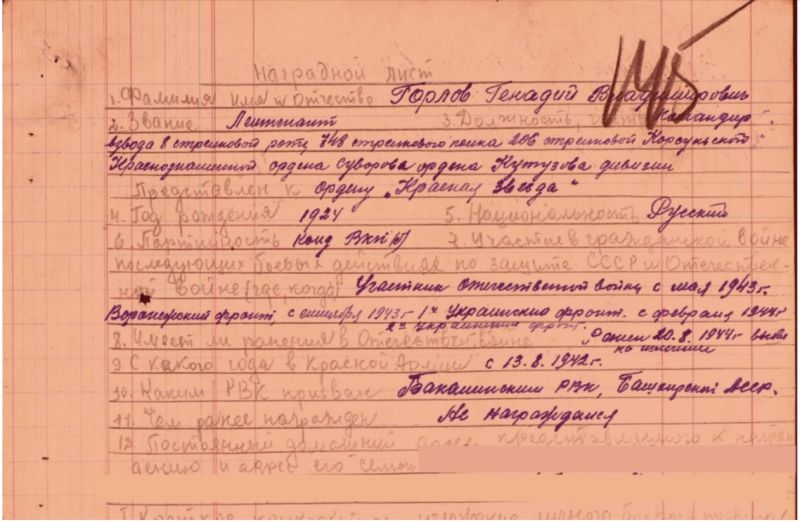 Наградной лист
1. Фамилия имя и Отчество Горлов Генадий Владимирович
2. Звание Лейтенант 3. Должность, часть Командир
взвода 8 стрелковой роты 748 стрелкового полка 206 стрелковой Корсуньской
Краснознаменной ордена Суворова ордена Кутузова дивизии
Представлен к Ордену "Красная Звезда"
4. Год рождения 1924 5. Национальность Русский
6. Партийность Канд ВКП(б) 7. Участие в гражданской войне
последующих боевых действиях по защите СССР и Отечествен-
ной войне (где, когда) Участник Отечественной войны с мая 1943г.
Воронежский фронт, с 1943г 1й Украинский фронт. с февраля 1944г
2й Украинский фронт.
8. Имеет ли ранения в Отечеств. войне Ранен 20.8.1944г
9. С какого года в Красной Армии с 13.8.1942г.
10. Каким РВК призван Бакалинским РВК, Башкирской АССР.
11. Чем ранее награжден Не награждался
12. Постоянный домашний адрес представляемого к награж-
дению и адрес его семьи